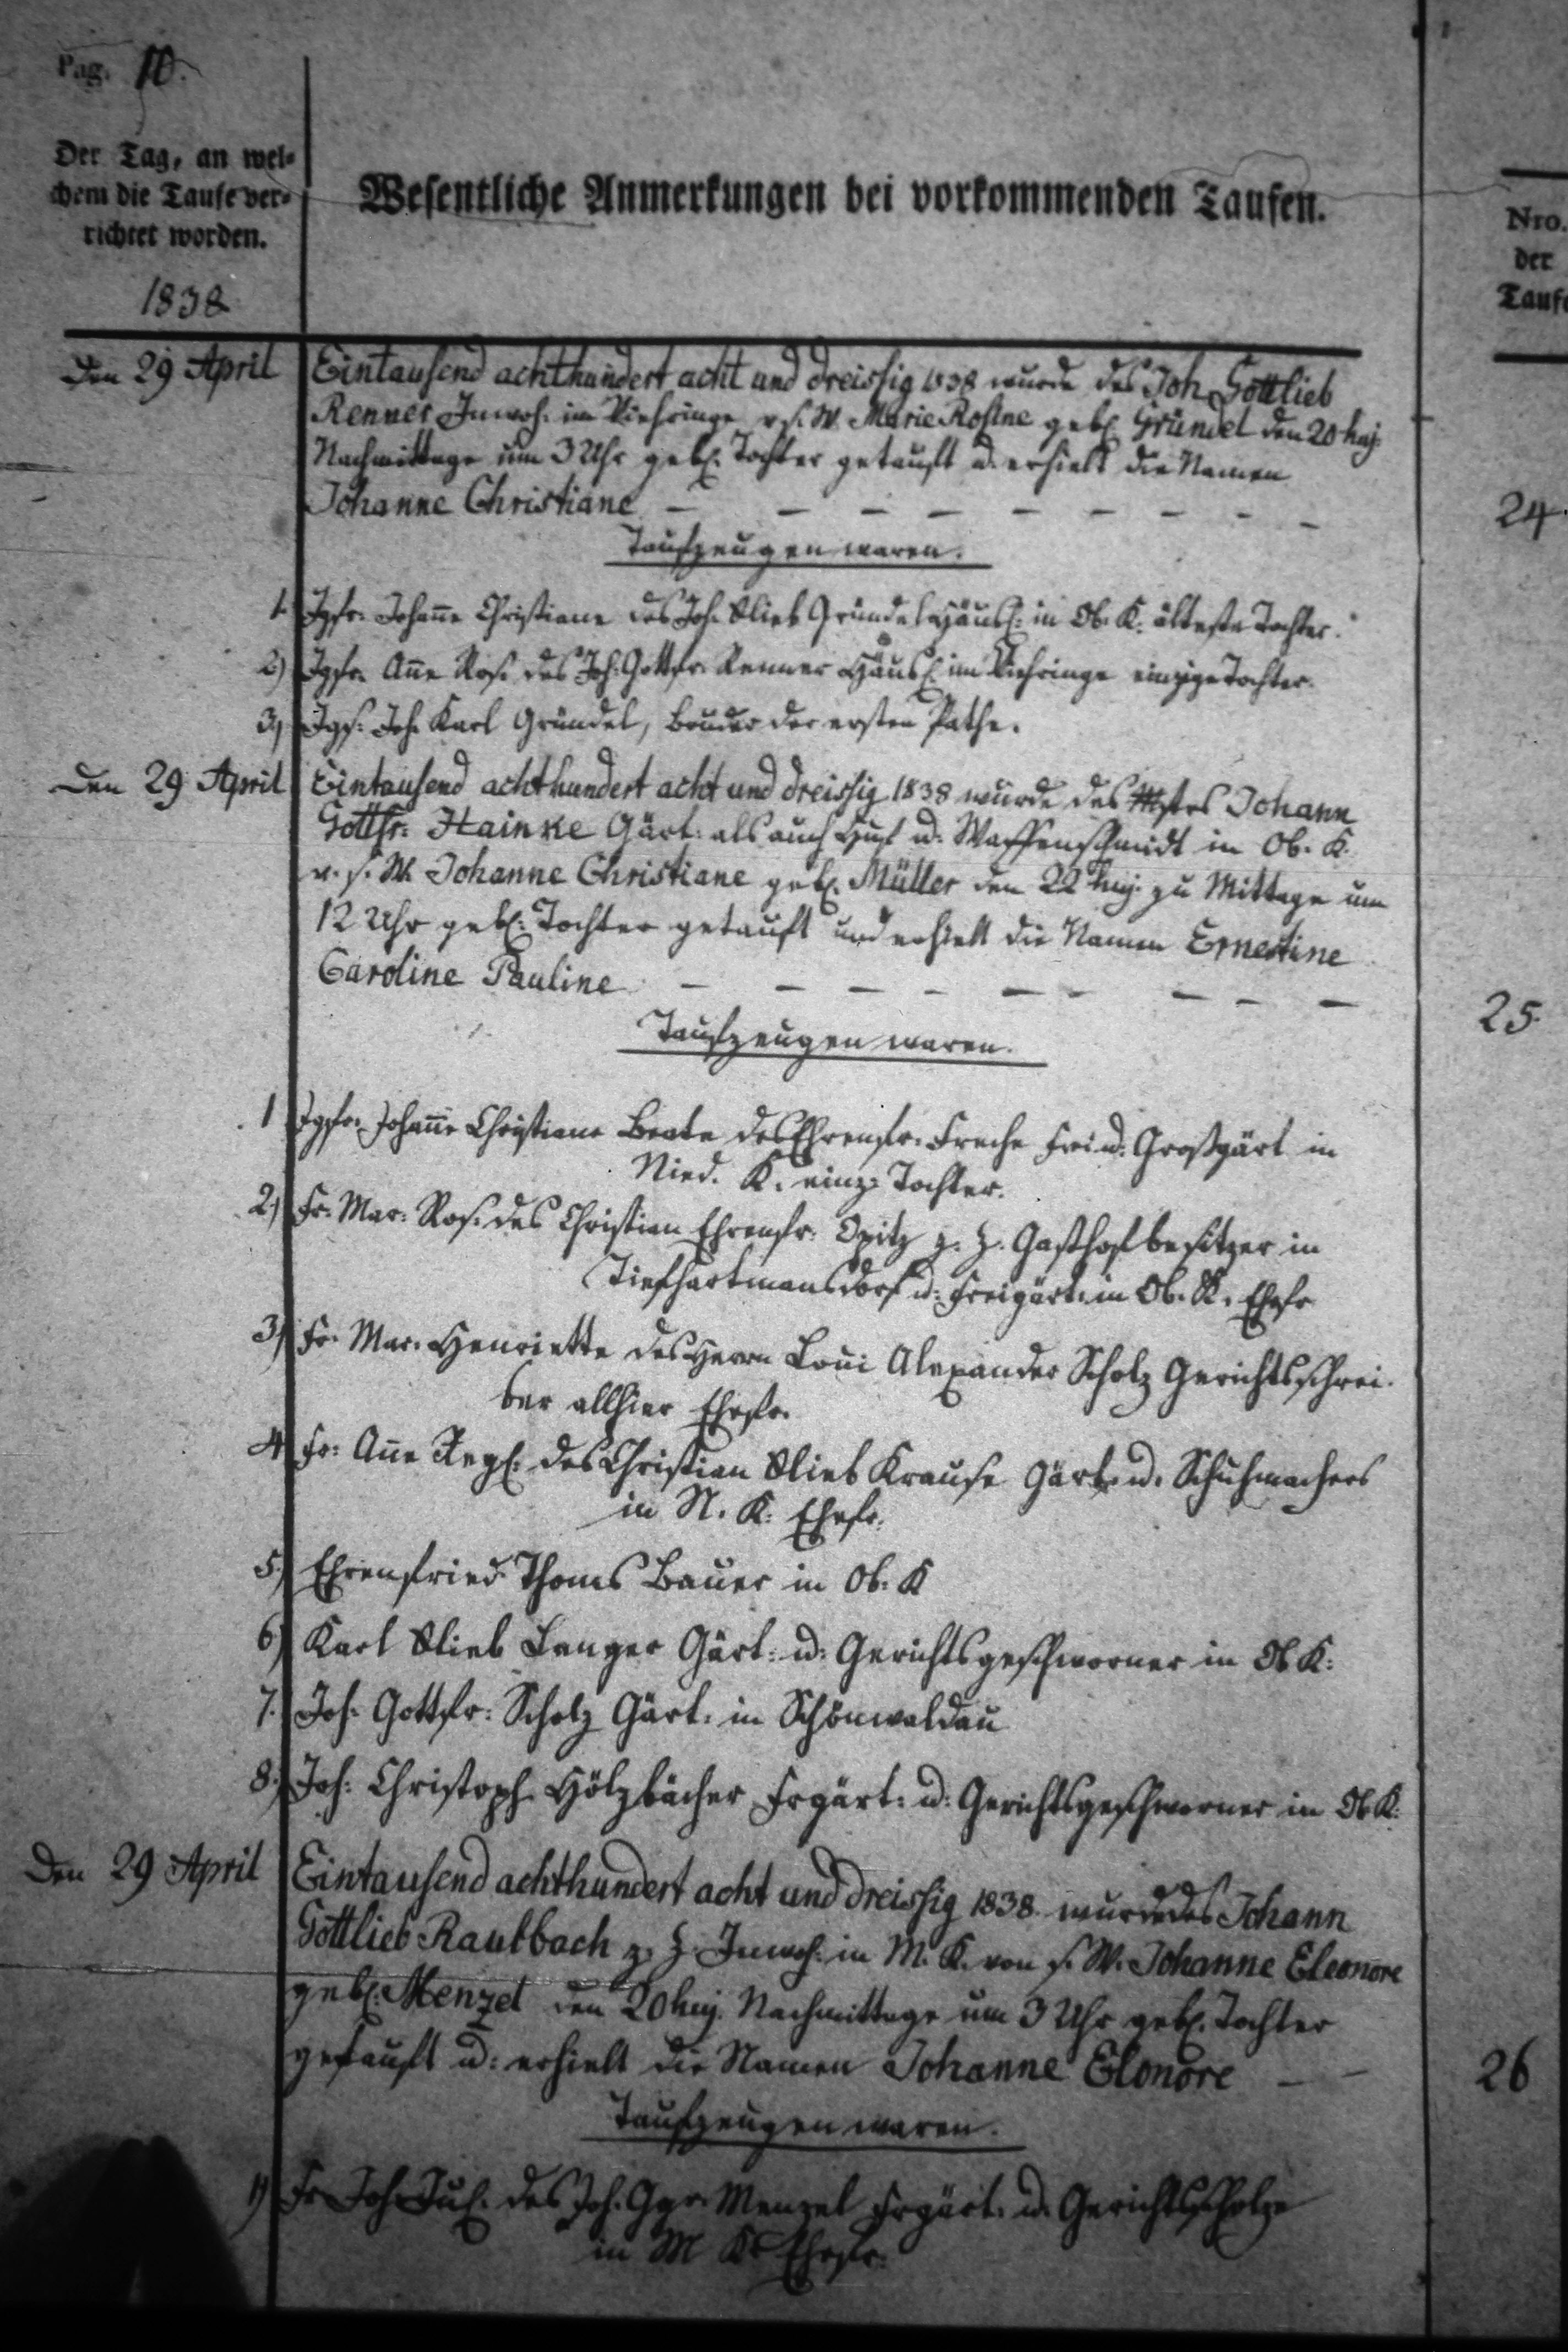 Pag. 10.
Der Tag, an wel-
chem die Taufe ver-
richtet worden.
1838
Wesentliche Anmerkungen bei vorkommenden Taufen.
Nro.
der
Taufe
Den 29 April
Eintausend achthundert acht und dreissig 1838 wurde des Joh. Gottlieb
Renner Inwoh: im Viehringe v. s. W. Marie Rosine geb. Gründel den 20 huj.
Nachmittage um 3 Uhr geb. Tochter getauft u. erhielt die Namen
Johanne Christiane — — — — — — — —
24.
Taufzeugen waren.
1. Jgfr. Johañe Christiane des Joh. Glieb Gründel Häusl: in Ob. K. älteste Tochter.
2) Jgfr. Añe Ros. des Joh. Gottfr. Renner Häusl. im Viehringe einzige Tochter.
3) Jgs. Joh. Karl Gründel, Bruder der ersten Pathe.
Den 29 April
Eintausend achthundert acht und dreissig 1838 wurde des Mstrs Johann
Gottfr: Hainke Gärt: als auch Huf u. Waffenschmidt in Ob. K.
v. s. W. Johanne Christiane geb. Müller den 22 huj. zu Mittage um
12 Uhr geb: Tochter getauft und erhielt die Namen Ernestine
Caroline Pauline — — — — — — — — —
25.
Taufzeugen waren.
1 Jgfr. Johañe Christiane Beate des Ehrenfr. Freche Frei u. Großgärt in
Nied. K. einz: Tochter.
2.) Fr. Mar: Ros. des Christian Ehrenfr: Opitz z. Z. Gasthofbesitzer in
Tiefhartmansdorf u: Freigärt: in Ob. K. Ehefr
3) Fr. Mar. Henriette des Herrn Loui Alexander Scholz Gerichtsschrei-
ber allhier Ehefr.
4 Fr: Añe Regl. des Christian Glieb Krause Gärt. u. Schuhmachers
in N. K: Ehefr.
5.) Ehrenfried Thoms Bauer in Ob. K
6) Karl Glieb Langer Gärt: u: Gerichtsgeschworner in Ob K:
7. Joh. Gottfr: Scholz Gärt: in Schönwaldau
8.) Joh: Christoph Hölzbächer Frgärt: u: Gerichtsgeschworner in Ob K:
Den 29 April
Eintausend achthundert acht und dreissig 1838. wurde des Johann
Gottlieb Raulbach z. Z. Inwoh: in M. K. von s. W. Johanne Eleonore
geb. Menzel den 20 huj. Nachmittage um 3 Uhr geb. Tochter
getauft u: erhielt die Namen Johanne Elonore — —
26
Taufzeugen waren.
1) Fr Joh. Jul. des Joh. Ggr. Menzel Frgärt: u. Gerichtsscholze
in M K. Ehefr: